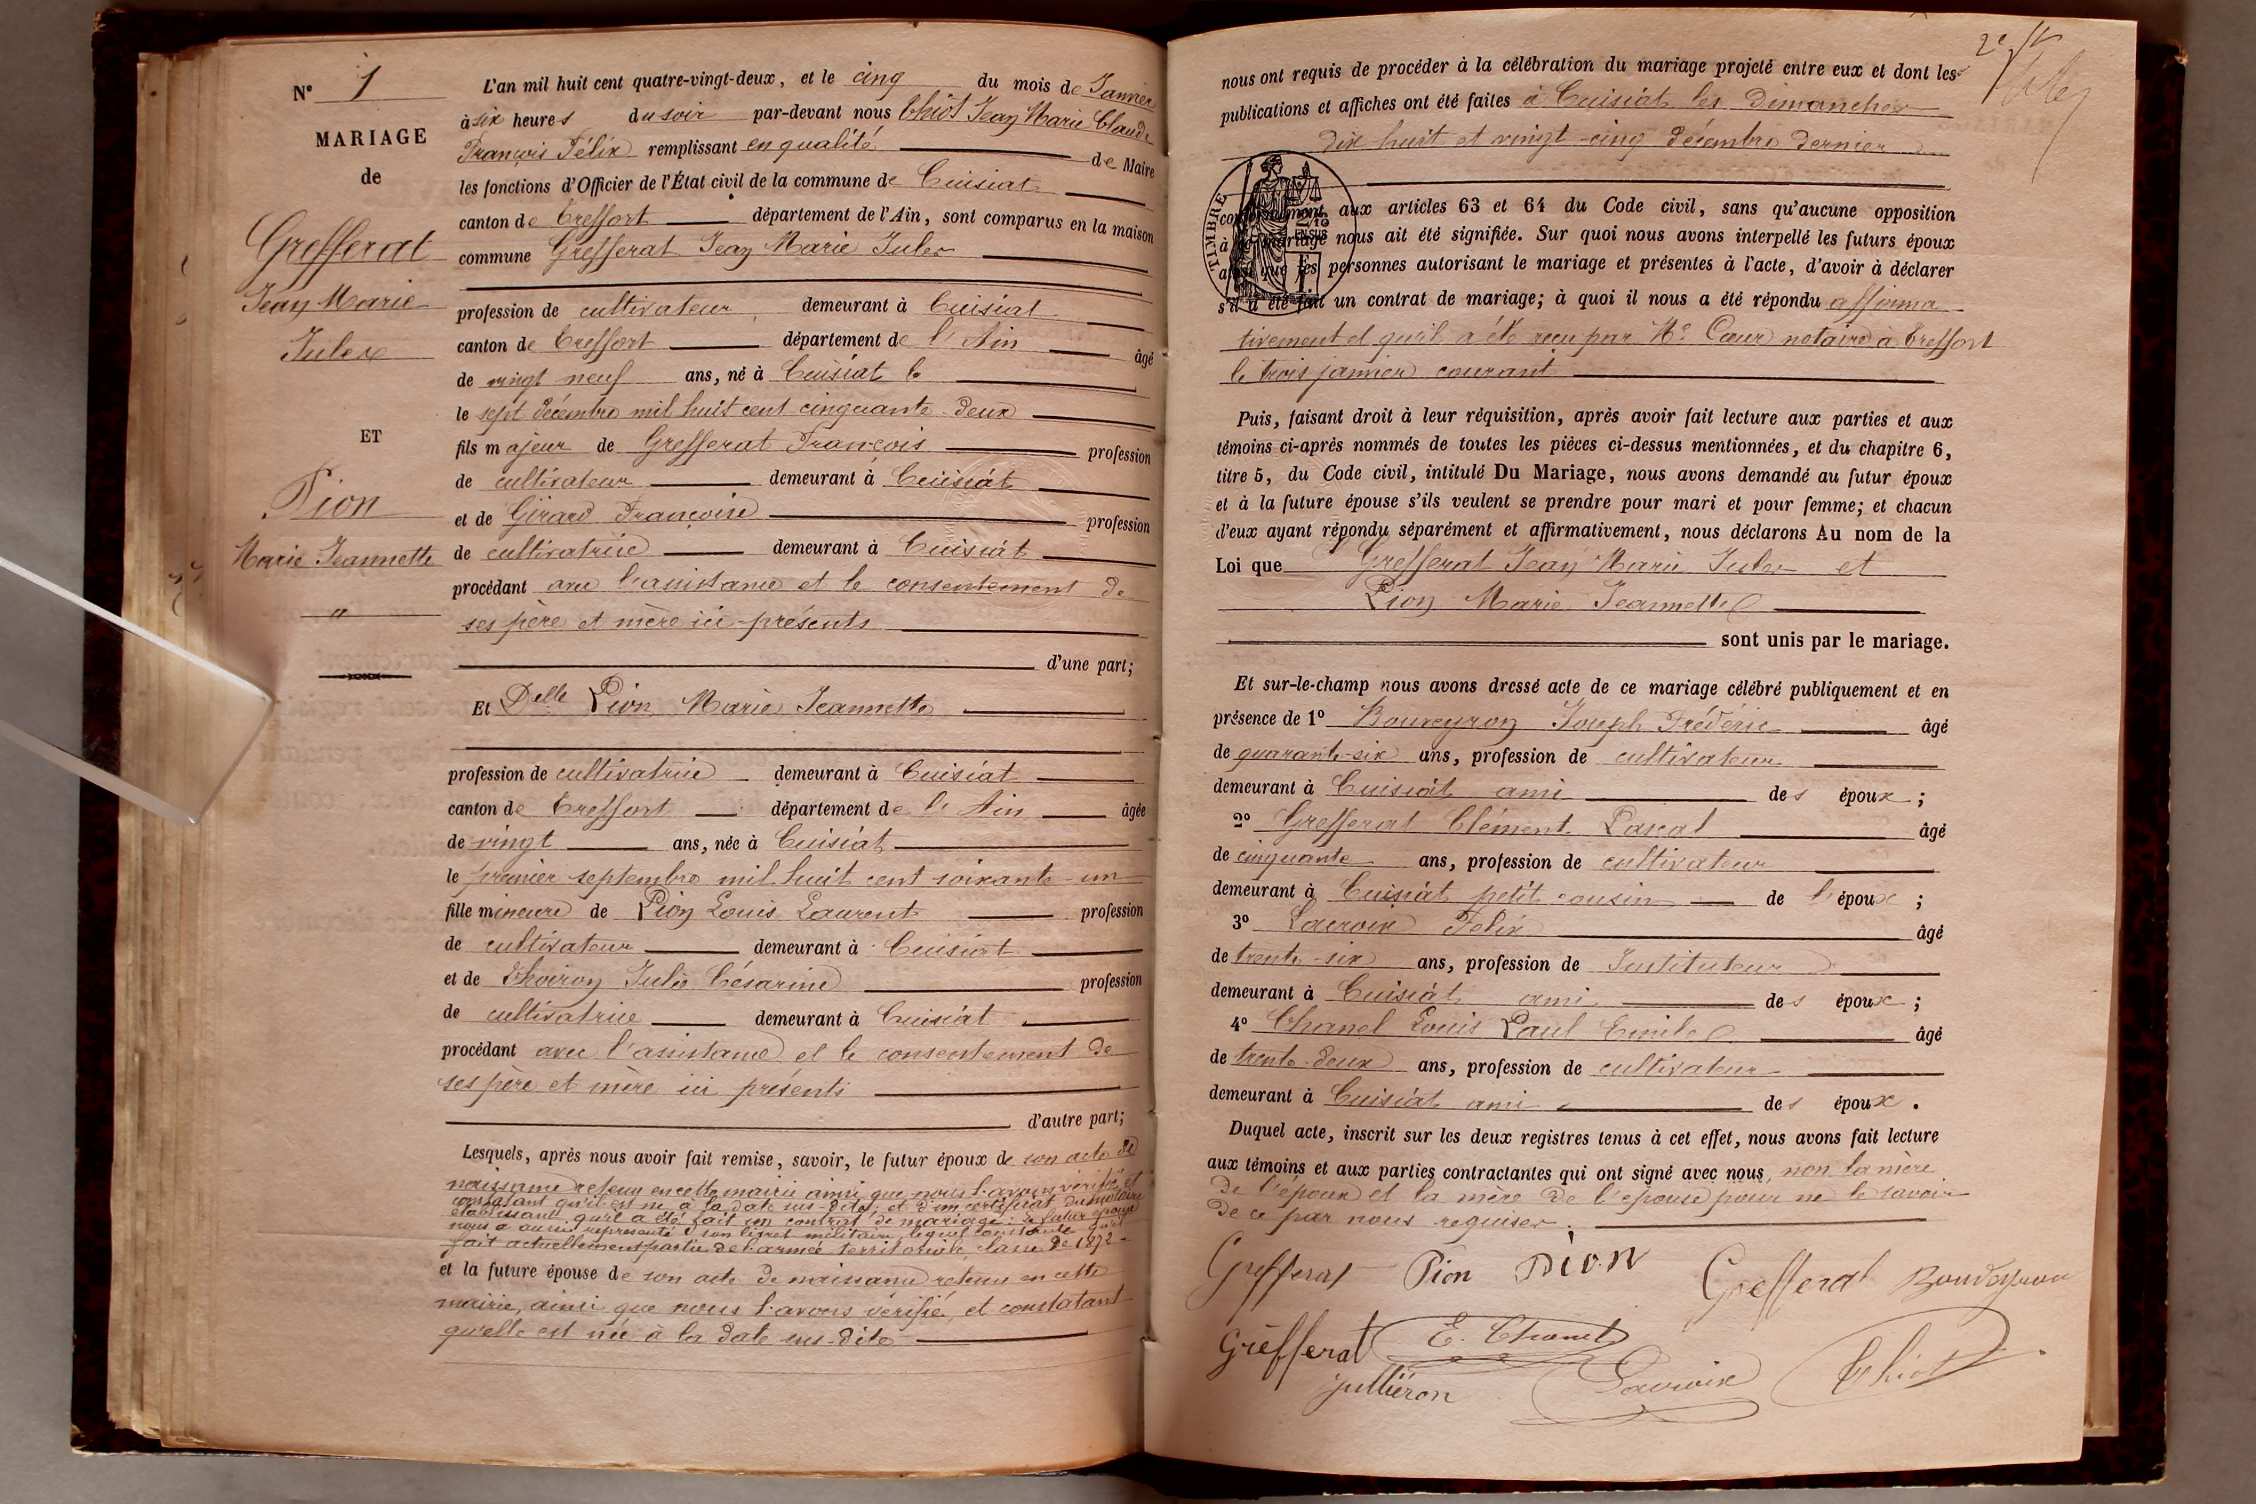 N° 1
MARIAGE
de
Grefferat
Jean Marie
Jules
ET
Pion
Marie Jeannette
"
L'an mil huit cent quatre-vingt-deux, et le cinq du mois de Janvier
à six heures du soir par-devant nous Chiot Jean Marie Claude
François Félix remplissant en qualité de Maire
les fonctions d'Officier de l'État civil de la commune de Cuisiat
canton de Treffort département de l'Ain, sont comparus en la maison
commune Grefferat Jean Marie Jules
profession de cultivateur demeurant à Cuisiat
canton de Treffort département de l'Ain âgé
de vingt neuf ans, né à Cuisiat le
le sept décembre mil huit cent cinquante-deux
fils majeur de Grefferat François profession
de cultivateur demeurant à Cuisiat
et de Girard Françoise profession
de cultivatrice demeurant à Cuisiat
procédant avec l'assistance et le consentement de
ses père et mère ici présents
d'une part;
Et Delle Pion Marie Jeannette
profession de cultivatrice demeurant à Cuisiat
canton de Treffort département de l'Ain âgée
de vingt ans, née à Cuisiat
le premier septembre mil huit cent soixante-un
fille mineure de Pion Louis Laurent profession
de cultivateur demeurant à Cuisiat
et de Thoiron Julie Césarine profession
de cultivatrice demeurant à Cuisiat
procédant avec l'assistance et le consentement de
ses père et mère ici présents
d'autre part;
Lesquels, après nous avoir fait remise, savoir, le futur époux de son acte de
naissance retenu en cette mairie ainsi que nous l'avons vérifié et
constatant qu'il est né à la date sus-dite; et d'un certificat du notaire
établissant qu'il a été fait un contrat de mariage; le futur époux
nous a aussi représenté son livret militaire, lequel constate qu'il
fait actuellement partie de l'armée territoriale, classe de 1872
et la future épouse de son acte de naissance retenu en cette
mairie, ainsi que nous l'avons vérifié, et constatant
qu'elle est née à la date sus-dite
2e
nous ont requis de procéder à la célébration du mariage projeté entre eux et dont les
publications et affiches ont été faites à Cuisiat les dimanches
dix huit et vingt-cinq décembre dernier
TIMBRE
conformément aux articles 63 et 64 du Code civil, sans qu'aucune opposition
à ce mariage nous ait été signifiée. Sur quoi nous avons interpellé les futurs époux
ainsi que les personnes autorisant le mariage et présentes à l'acte, d'avoir à déclarer
s'il a été fait un contrat de mariage; à quoi il nous a été répondu affirma
tivement et qu'il a été reçu par Me Cœur notaire à Treffort
le trois janvier courant
Puis, faisant droit à leur réquisition, après avoir fait lecture aux parties et aux
témoins ci-après nommés de toutes les pièces ci-dessus mentionnées, et du chapitre 6,
titre 5, du Code civil, intitulé Du Mariage, nous avons demandé au futur époux
et à la future épouse s'ils veulent se prendre pour mari et pour femme; et chacun
d'eux ayant répondu séparément et affirmativement, nous déclarons Au nom de la
Loi que Grefferat Jean Marie Jules et
Pion Marie Jeannette
sont unis par le mariage.
Et sur-le-champ nous avons dressé acte de ce mariage célébré publiquement et en
présence de 1° Bouveyron Joseph Frédéric âgé
de quarante-six ans, profession de cultivateur
demeurant à Cuisiat ami des époux;
2° Grefferat Clément Pascal âgé
de cinquante ans, profession de cultivateur
demeurant à Cuisiat petit cousin de l'époux;
3° Lacroix Félix âgé
de trente-six ans, profession de Instituteur
demeurant à Cuisiat ami des époux;
4° Chanel Louis Paul Emile âgé
de trente-deux ans, profession de cultivateur
demeurant à Cuisiat ami des époux.
Duquel acte, inscrit sur les deux registres tenus à cet effet, nous avons fait lecture
aux témoins et aux parties contractantes qui ont signé avec nous, non la mère
de l'époux et la mère de l'épouse pour ne le savoir
de ce par nous requises.
Grefferat Pion PION Grefferat Bouveyron
Grefferat E. Chanel
Julliéron Lacroix Chiot